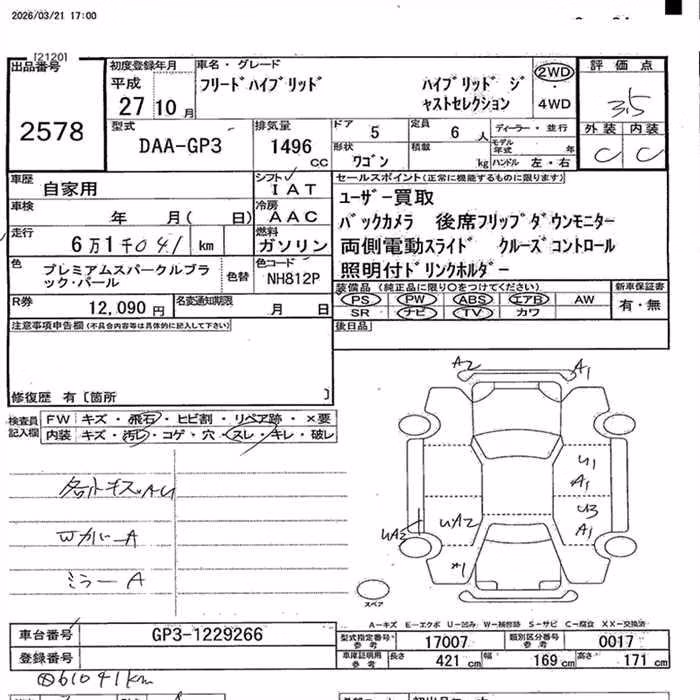 2026/03/21 17:00
[2120]
出品番号
2578
初度登録年月
平成
27年10月
車名・グレード
フリードハイブリッド ハイブリッド ジ
ャストセレクション
2WD
4WD
評価点
3.5
外装 内装
C C
型式
DAA-GP3
排気量
1496
CC
ドア 5
定員 6人
形状
ワゴン
積載 kg
ディーラー・並行
モデル年式 年
ハンドル 左・右
車歴
自家用
シフト
IAT
車検
年 月( 日)
冷房
AAC
走行
6万1千041 km
燃料
ガソリン
色
プレミアムスパークルブラ
ック・パール
色替
色コード
NH812P
R券
12,090円
名変通知期限
月 日
セールスポイント(正常に機能するものに限ります)
ユーザー買取
バックカメラ 後席フリップダウンモニター
両側電動スライド クルーズコントロール
照明付ドリンクホルダー
装備品(純正品に限り○をつけてください)
PS PW ABS エアB AW
SR ナビ TV カワ
新車保証書
有・無
後日品
注意事項申告欄(不具合内容等は具体的に記入して下さい)
修復歴 有〔箇所 〕
検査員
記入欄
FW キズ・飛石・ヒビ割・リペア跡・×要
内装 キズ・汚レ・コゲ・穴・スレ・キレ・破レ
各外キズAU
WカバーA
ミラーA
A2
A1
U1
A1
U3
A1
UA2
UA2
スペア
A-キズ E-エクボ U-凹み W-補修跡 S-サビ C-腐食 XX-交換済
車台番号
GP3-1229266
登録番号
型式指定番号
参考
17007
類別区分番号
参考
0017
車庫証明用
参考
長さ 421cm 幅 169cm 高さ 171cm
61041km